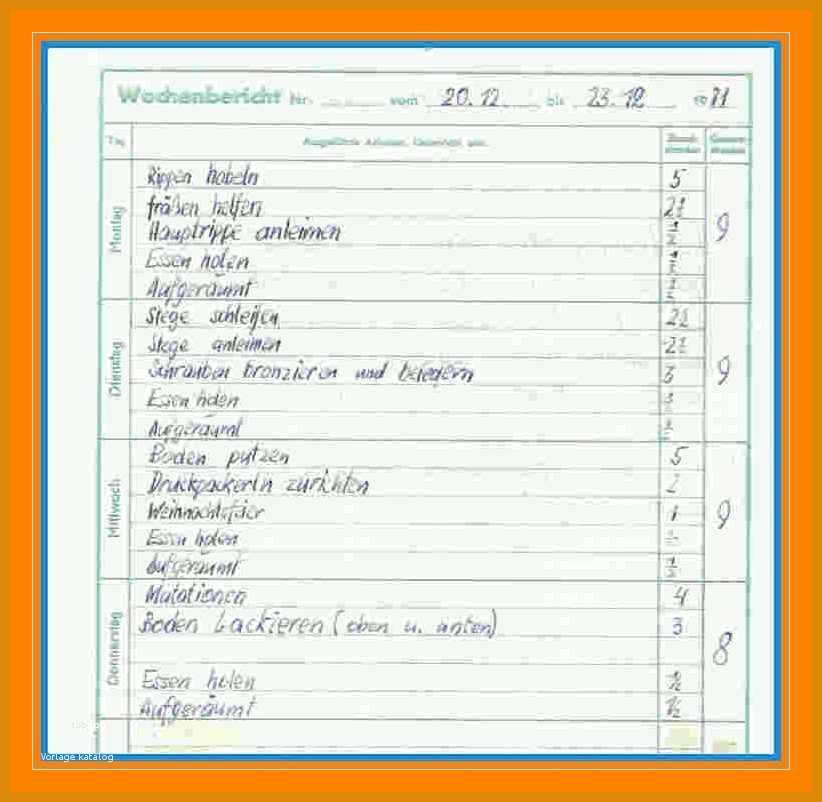 Wochenbericht Nr. vom 20.12. bis 23.12 1971
Tag Ausgeführte Arbeiten, Unterricht usw. Einzel-stunden Gesamt-stunden
Montag
Rippen hobeln 5
fräßen helfen 2½
Hauptrippe anleimen ½
Essen holen ½
Aufgeräumt ½
9
Dienstag
Stege schleifen 2½
Stege anleimen 2½
Schrauben bronzieren und beledern 3
Essen holen ½
Aufgeräumt ½
9
Mittwoch
Boden putzen 5
zurichten 2
Weihnachtsfeier 1
Essen holen ½
Aufgeräumt ½
9
Donnerstag
Mutationen 4
Boden Lackieren (oben u. unten) 3
Essen holen ½
Aufgeräumt ½
8
Vorlage katalog